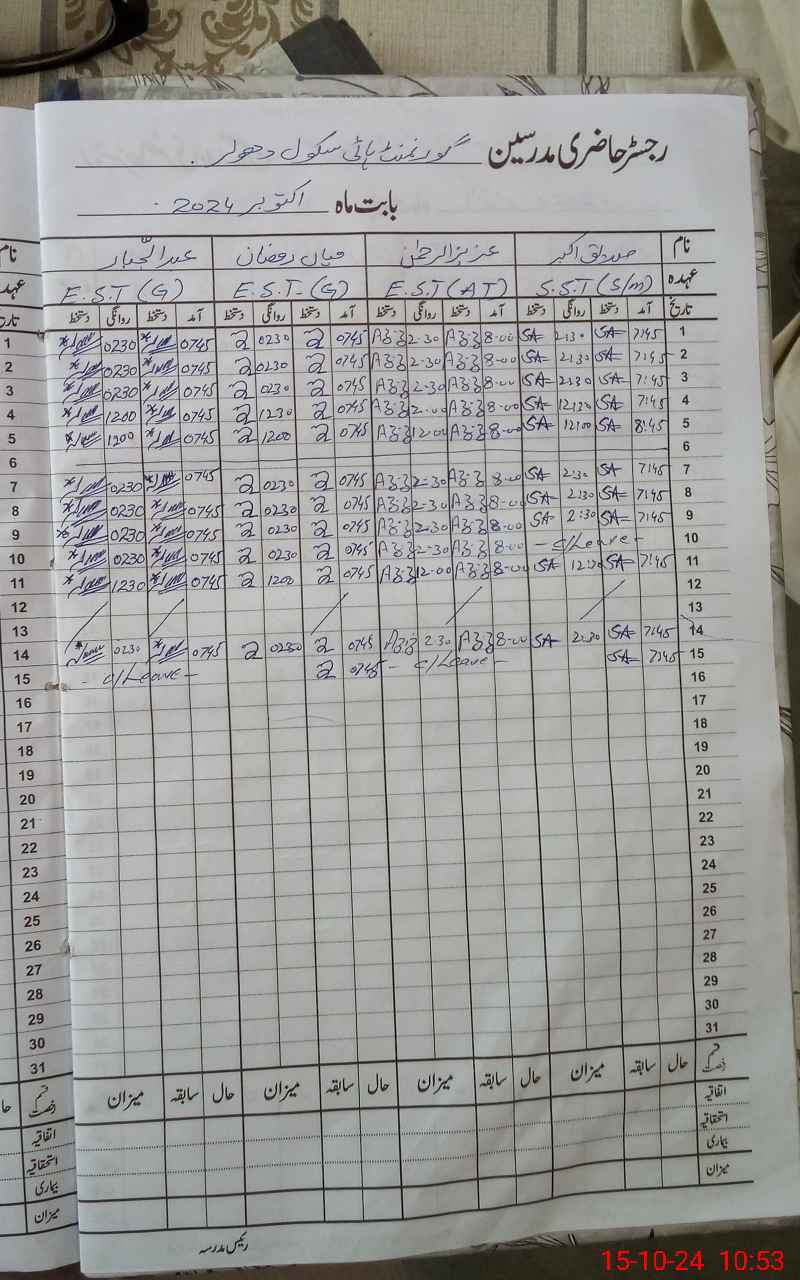 رجسٹر حاضری مدرسین گورنمنٹ ہائی سکول دھولر
بابت ماہ اکتوبر 2024
نام صدیق اکبر عزیز الرحمٰن میاں رمضان عبدالجبار نام
عہدہ S.S.T (S/m) E.S.T (AT) E.S.T.(G) E.S.T (G) عہدہ
تاریخ آمد دستخط روانگی دستخط آمد دستخط روانگی دستخط آمد دستخط روانگی دستخط آمد دستخط روانگی دستخط تاریخ
1 0230 0745 0230 0745 2-30 8-00 SA 2:30 SA 7:45 1
2 0230 0745 0230 0745 2-30 8-00 SA 2:30 SA 7:45 2
3 0230 0745 0230 0745 2-30 8-00 SA 2:30 SA 7:45 3
4 1200 0745 1230 0745 2-00 8-00 SA 12:30 SA 7:45 4
5 1200 0745 1200 0745 12-00 8-00 SA 12:00 SA 8:45 5
6 6
7 0230 0745 0230 0745 2-30 8-00 SA 2:30 SA 7:45 7
8 0230 0745 0230 0745 2-30 8-00 SA 2:30 SA 7:45 8
9 0230 0745 0230 0745 2-30 8-00 SA 2:30 SA 7:45 9
10 0230 0745 0230 0745 2-30 8-00 - C/Leave - 10
11 1230 0745 1200 0745 12-00 8-00 SA 12:30 SA 7:45 11
12 12
13 13
14 0230 0745 0230 0745 2-30 8-00 SA 2:30 SA 7:45 14
15 - C/Leave - 0745 - C/Leave - SA 7:45 15
16 16
17 17
18 18
19 19
20 20
21 21
22 22
23 23
24 24
25 25
26 26
27 27
28 28
29 29
30 30
31 31
قسم رخصت حال سابقہ میزان حال سابقہ میزان حال سابقہ میزان حال سابقہ میزان قسم رخصت حال
اتفاقیہ اتفاقیہ
استحقاقیہ استحقاقیہ
بیماری بیماری
میزان میزان
رئیس مدرسہ
15-10-24 10:53